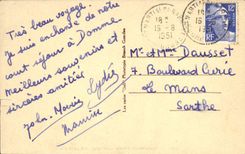 Très beau voyage.
Je suis enchanté de notre
court séjour à Domme.
Meilleurs souvenirs et
sincères amitiés
Maurice
18H
15-8
1951
12F
Mr et Mme Dausset
7 Boulevard Curie
Le Mans
Sarthe